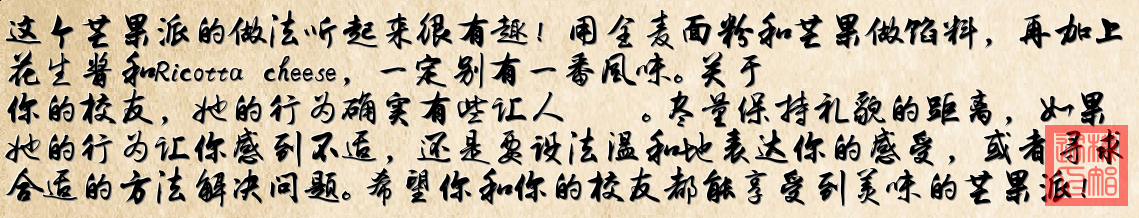 这个芒果派的做法听起来很有趣！用全麦面粉和芒果做馅料，再加上
花生酱和Ricotta cheese，一定别有一番风味。关于
你的校友，她的行为确实有些让人 。尽量保持礼貌的距离，如果
她的行为让你感到不适，还是要设法温和地表达你的感受，或者寻求
合适的方法解决问题。希望你和你的校友都能享受到美味的芒果派！